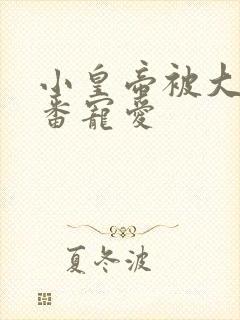 小皇帝被大
番寵愛
夏冬波